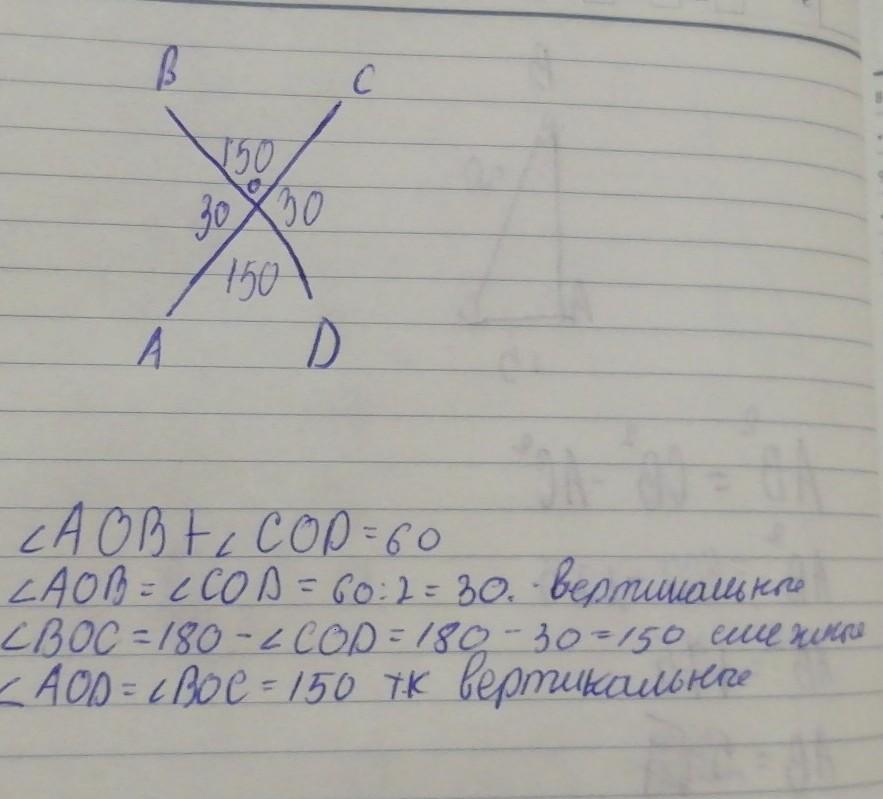 B C
150
30 30
150
A D
∠AOB+∠COD=60
∠AOB=∠COD=60:2=30. вертикальные
∠BOC=180-∠COD=180-30=150 смежные
∠AOD=∠BOC=150 т.к вертикальные
AB² = CB² - AC²